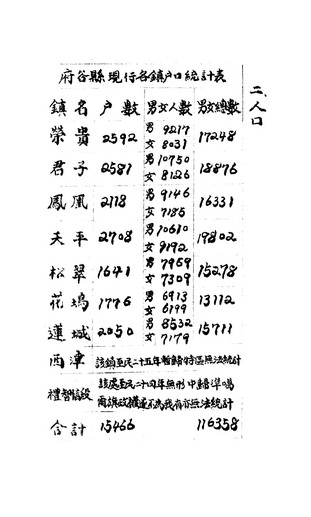 二、人口
府谷縣現行各鎮戶口統計表
鎮名 戶數 男女人數 男女總數
榮貴 2592 男 9217 女 8031 17248
君子 2581 男 10750 女 8126 18876
鳳凰 2118 男 9146 女 7185 16331
天平 2708 男 10610 女 9192 19802
松翠 1641 男 7969 女 7309 15278
花塢 1776 男 6913 女 6199 13112
蓮城 2050 男 8532 女 7179 15711
西津 該鎮至民二十五年暫歸特區無法統計
禮智信段 該處至民二十四年無形中歸準噶爾旗政權 不為我有亦無法統計
合計 15466 116358